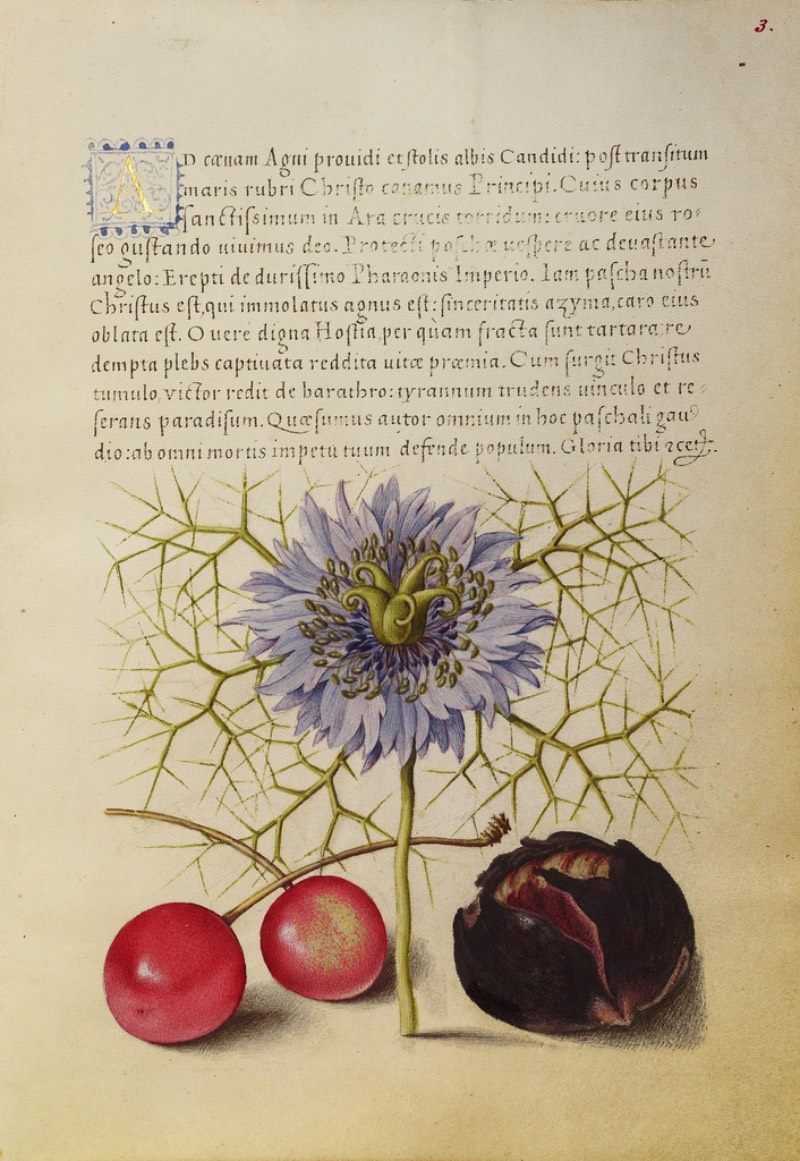 3.
AD cænam Agni prouidi et ſtolis albis Candidi: poſt tranſitum
maris rubri Chriſto canamus Principi. Cuius corpus
ſanctiſsimum in Ara crucis torridum: cruore eius ro-
ſeo guſtando uiuimus deo. Protecti paſchæ ueſpere ac deuaſtante
angelo: Erepti de duriſſimo Pharaonis Imperio. Iam paſcha noſtrū
Chriſtus eſt, qui immolatus agnus eſt: ſinceritatis azyma, caro eius
oblata eſt. O uere digna Hoſtia, per quàm fracta ſunt tartara, re
dempta plebs captiuata reddita uitæ præmia. Cum ſurgit Chriſtus
tumulo, victor redit de barathro: tyrannum trudens uinculo et re-
ſerans paradiſum. Quæſumus autor omnium in hoc paſchali gau
dio: ab omni mortis impetu tuum defende populum. Gloria tibi &cet.